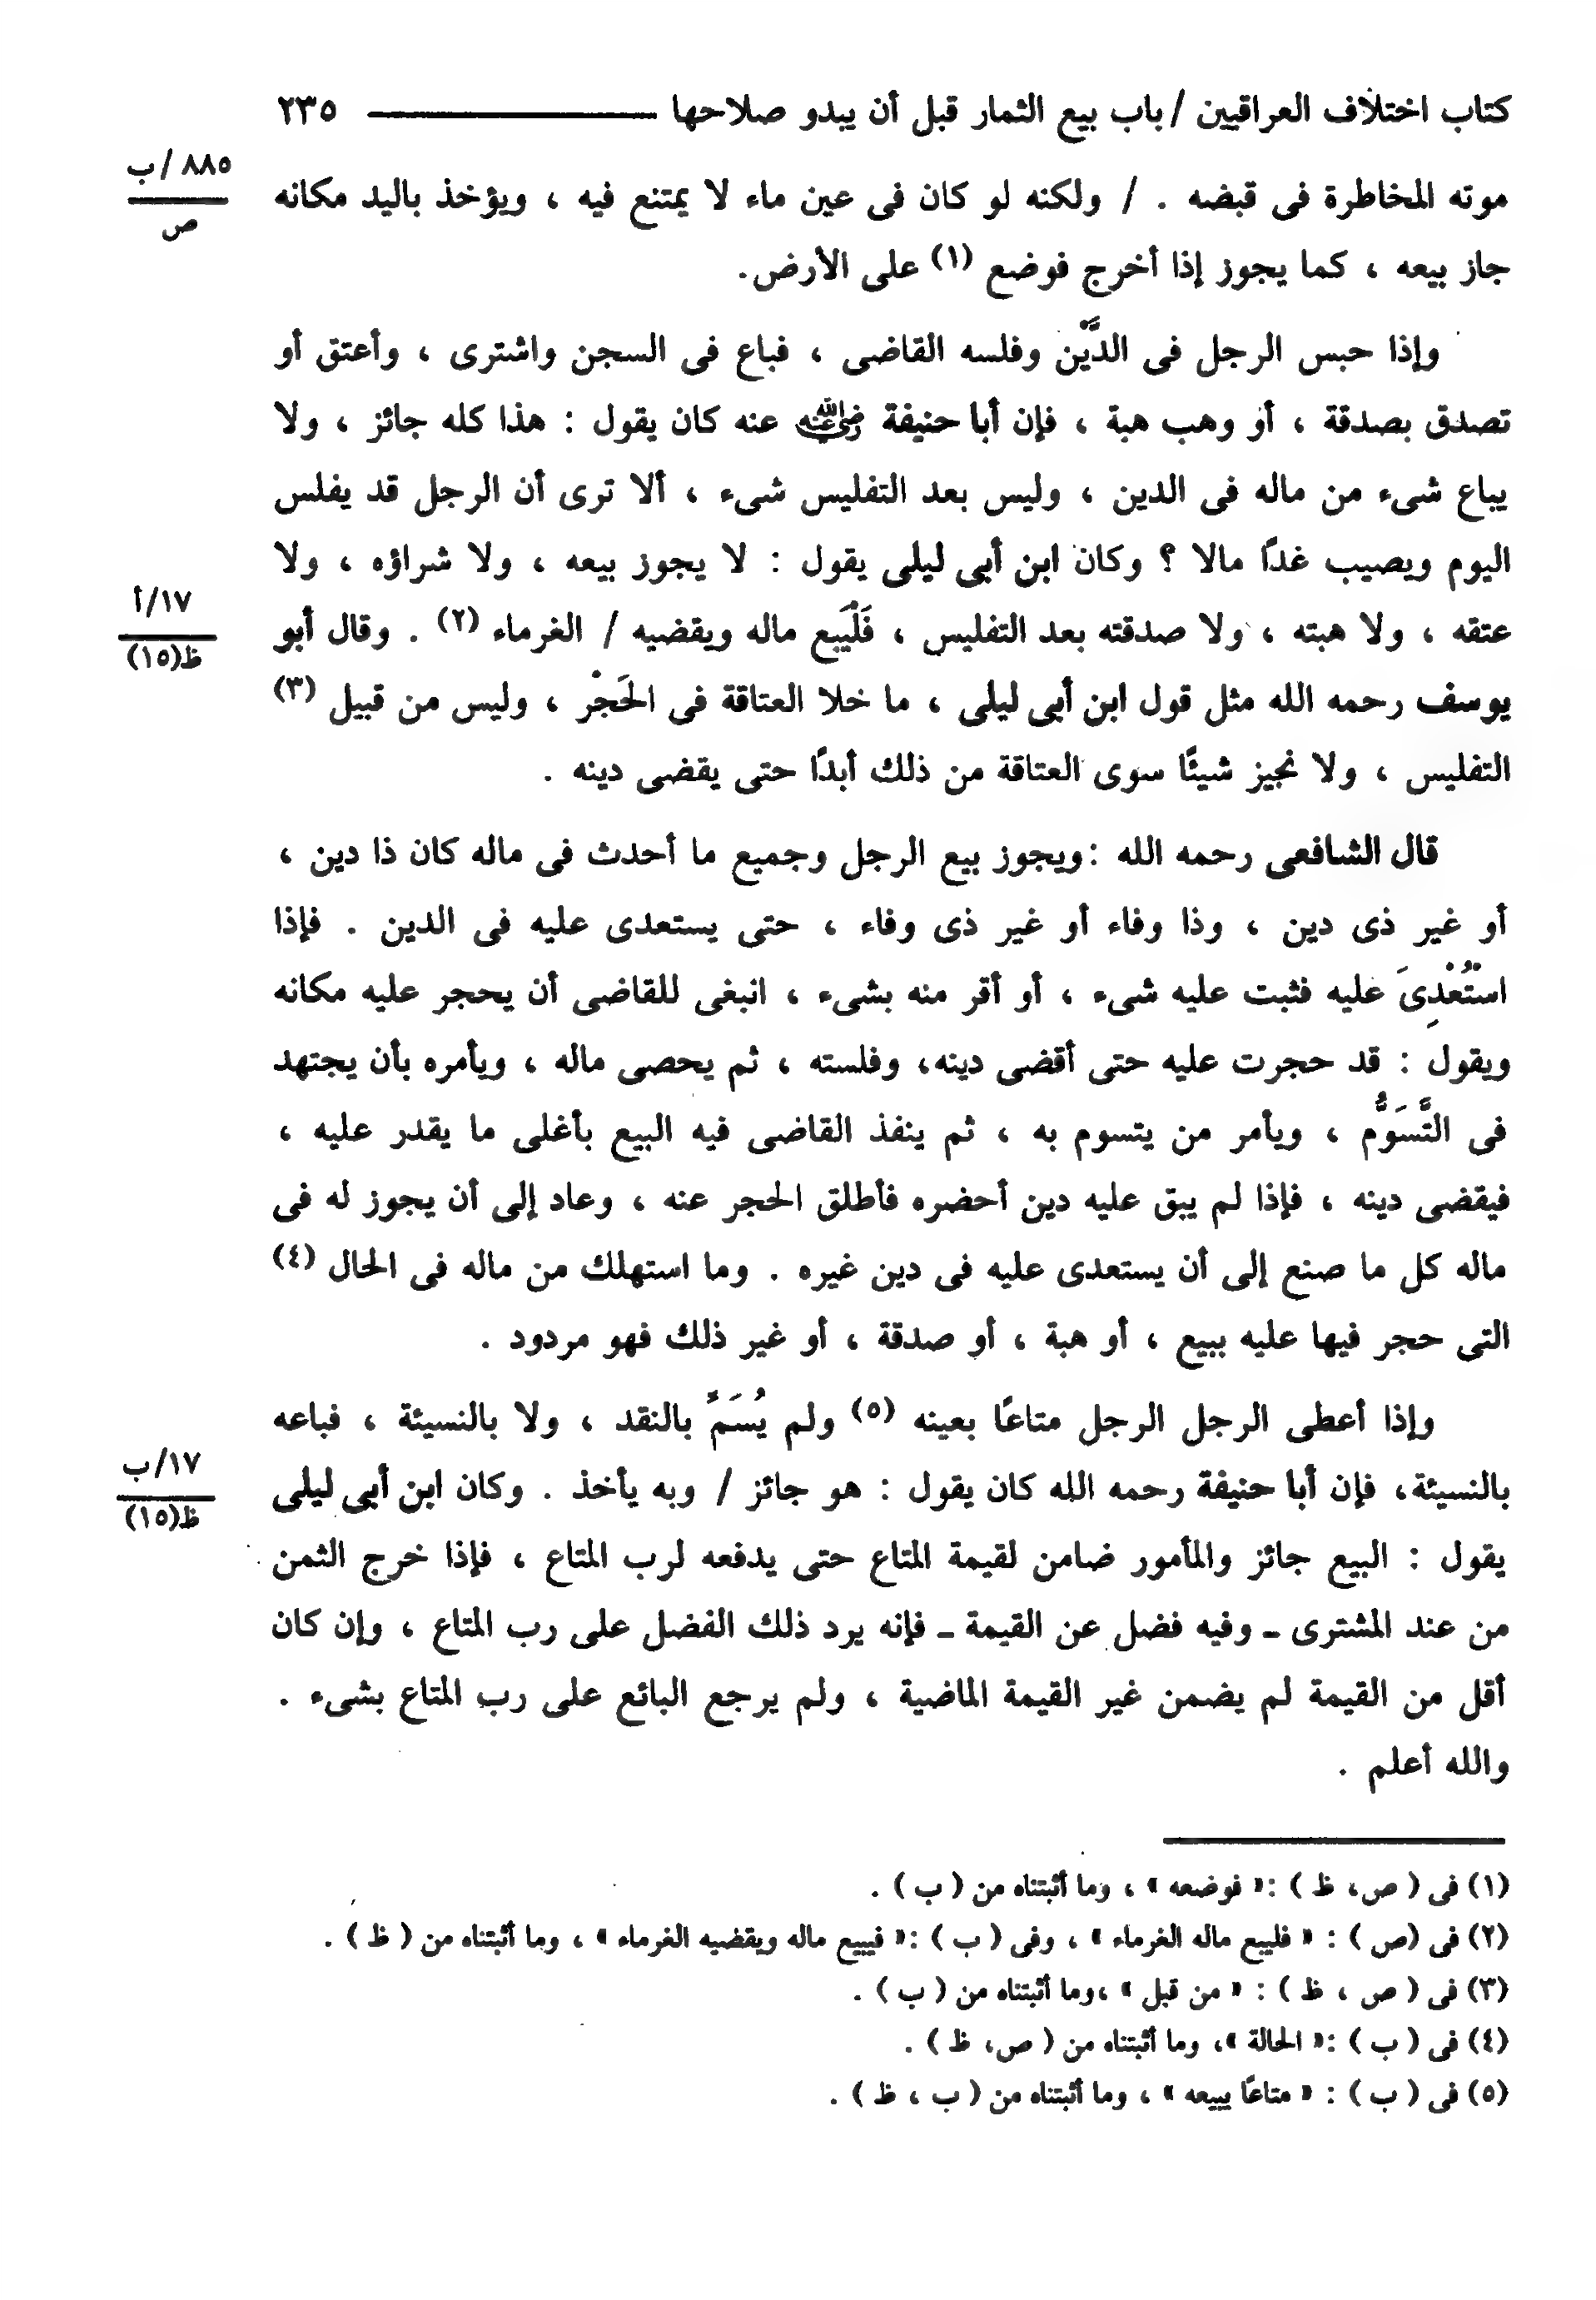 كتاب اختلاف العراقيين / باب بيع الثمار قبل أن يبدو صلاحها ــــــــــــ ٢٣٥
٨٨٥ / ب
ص
موته المخاطرة فى قبضه . / ولكنه لو كان فى عين ماء لا يمتنع فيه ، ويؤخذ باليد مكانه
جاز بيعه ، كما يجوز إذا أخرج فوضع (١) على الأرض.
وإذا حبس الرجل فى الدَّيْن وفلسه القاضى ، فباع فى السجن واشترى ، وأعتق أو
تصدق بصدقة ، أو وهب هبة ، فإن أبا حنيفة رضي الله عنه عنه كان يقول : هذا كله جائز ، ولا
يباع شىء من ماله فى الدين ، وليس بعد التفليس شىء ، ألا ترى أن الرجل قد يفلس
اليوم ويصيب غدًا مالا ؟ وكان ابن أبى ليلى يقول : لا يجوز بيعه ، ولا شراؤه ، ولا
١٧/أ
ظ(١٥)
عتقه ، ولا هبته ، ولا صدقته بعد التفليس ، فَلْيَبِع ماله ويقضيه / الغرماء (٢) . وقال أبو
يوسف رحمه الله مثل قول ابن أبى ليلى ، ما خلا العتاقة فى الحَجْر ، وليس من قبيل (٣)
التفليس ، ولا نجيز شيئًا سوى العتاقة من ذلك أبدًا حتى يقضى دينه .
قال الشافعى رحمه الله :ويجوز بيع الرجل وجميع ما أحدث فى ماله كان ذا دين ،
أو غير ذى دين ، وذا وفاء أو غير ذى وفاء ، حتى يستعدى عليه فى الدين . فإذا
استُعْدِىَ عليه فثبت عليه شىء ، أو أقر منه بشىء ، انبغى للقاضى أن يحجر عليه مكانه
ويقول : قد حجرت عليه حتى أقضى دينه، وفلسته ، ثم يحصى ماله ، ويأمره بأن يجتهد
فى التَّسَوُّم ، ويأمر من يتسوم به ، ثم ينفذ القاضى فيه البيع بأغلى ما يقدر عليه ،
فيقضى دينه ، فإذا لم يبق عليه دين أحضره فأطلق الحجر عنه ، وعاد إلى أن يجوز له فى
ماله كل ما صنع إلى أن يستعدى عليه فى دين غيره . وما استهلك من ماله فى الحال (٤)
التى حجر فيها عليه ببيع ، أو هبة ، أو صدقة ، أو غير ذلك فهو مردود .
وإذا أعطى الرجل الرجل متاعًا بعينه (٥) ولم يُسَمِّ بالنقد ، ولا بالنسيئة ، فباعه
١٧/ب
ظ(١٥)
بالنسيئة، فإن أبا حنيفة رحمه الله كان يقول : هو جائز / وبه يأخذ . وكان ابن أبى ليلى
يقول : البيع جائز والمأمور ضامن لقيمة المتاع حتى يدفعه لرب المتاع ، فإذا خرج الثمن
من عند المشترى ـ وفيه فضل عن القيمة ـ فإنه يرد ذلك الفضل على رب المتاع ، وإن كان
أقل من القيمة لم يضمن غير القيمة الماضية ، ولم يرجع البائع على رب المتاع بشىء .
والله أعلم .
(١) فى ( ص، ظ ) :« فوضعه » ، وما أثبتناه من ( ب ) .
(٢) فى (ص ) : « فليبع ماله الغرماء » ، وفى ( ب ) :« فيبيع ماله ويقضيه الغرماء » ، وما أثبتناه من ( ظ ) .
(٣) فى ( ص ، ظ ) : « من قبل » ،وما أثبتناه من ( ب ) .
(٤) فى ( ب ) :« الحالة »، وما أثبتناه من ( ص، ظ ) .
(٥) فى ( ب ) : « متاعًا يبيعه » ، وما أثبتناه من ( ب ، ظ ) .